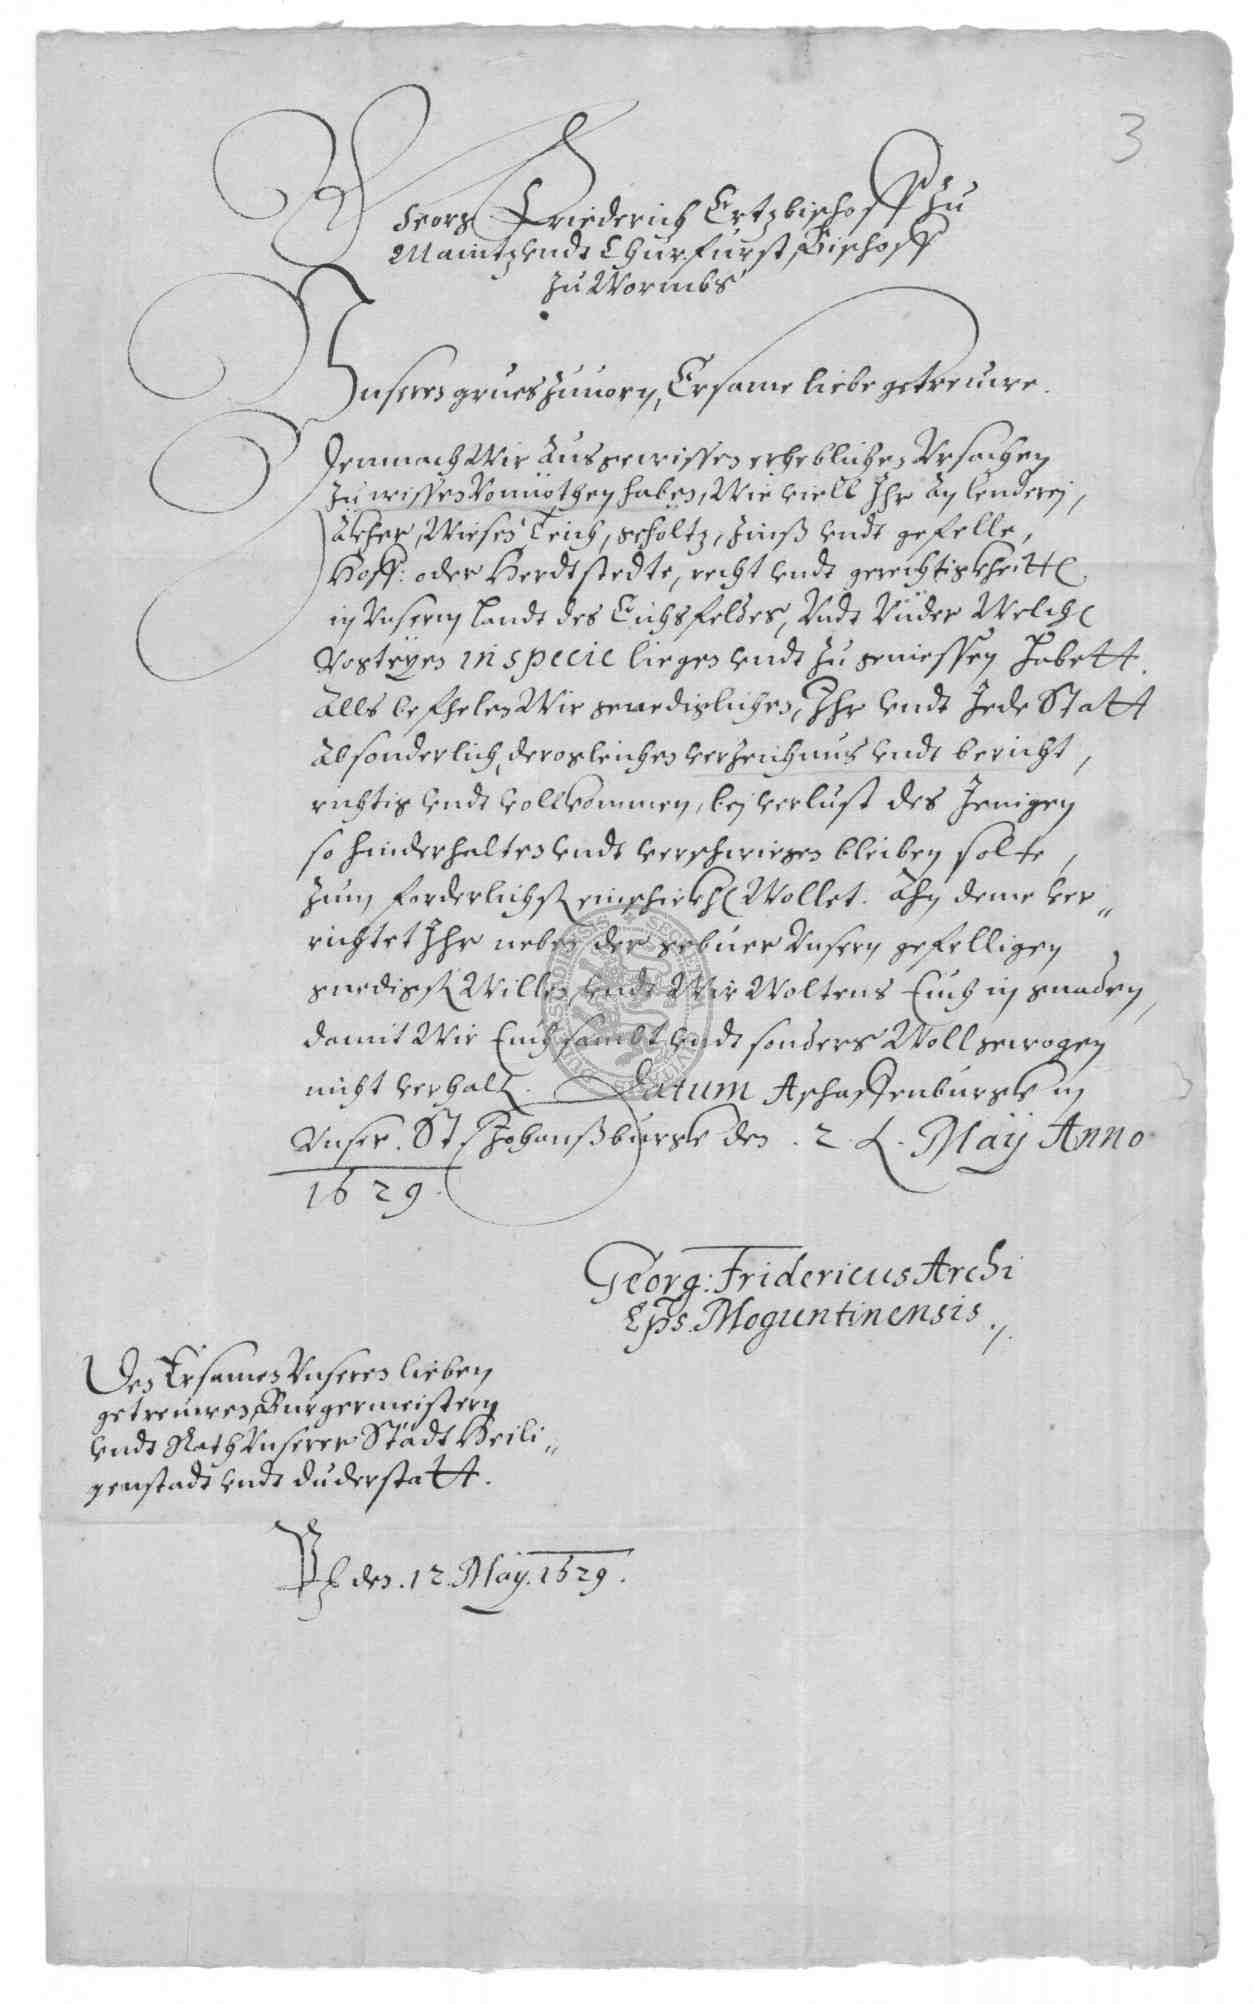 3
Georg Friederich Ertzbischoff Zu
Maintz undt Churfürst, Bischoff
Zu Wormbs
Unseren grues Zuuorn, Ersame liebe getreuwe.
Demnach Wir Aus gewissen erheblichen Ursachen
Zu wissen Vonnöthen haben, Wie viell Ihr An lenderej,
Äkher, Wiesen Teich, geholtz, Zinß undt gefelle,
Hoff: oder Herdtstedte, recht undt gerechtigkheitt
in Unserm Landt des Eichsfeldes, Undt Under Welche
Vogteÿen in specie liegen undt Zu geniessen Habett.
Alls befhelen Wir gnedigliches, Ihr undt Jede Statt
Absonderlich, derogleichen verzeichnus undt bericht,
richtig undt vollkommen, bej verlust des Jenigen
so hinderhalten undt verschwiegen bleiben solte,
Zum forderlichst einschickhe Wollet. Ahn deme ver„
richtet Ihr neben der gebuer Unsern gefelligen
gnedigst Willen, undt Wir Woltens Euch in gnaden,
damit Wir Euch sambt undt sonders Woll gewogen
nicht verhalt. Datum Aschaffenburgk in
Unser St Johanßburgk den . 2 . Maÿ Anno
1629.
Georg: Fridericus Archi
Eps. Moguntinensis
Den Ersamen Unseren lieben
getreuwen, Burgermeistern
undt Rath Unserer Städt Heili„
genstadt undt Duderstatt.
den . 12 . May . 1629 .